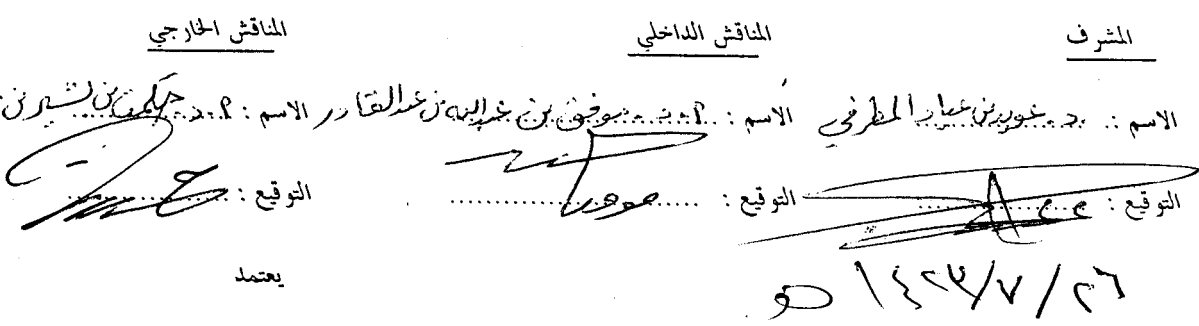 المشرف المناقش الداخلي المناقش الخارجي
الاسم : د. عويد بن عياد المطرفي الاسم : أ.د. موفق بن عبدالله بن عبدالقادر الاسم : أ.د. حكمت بن بشير بن
التوقيع : التوقيع : التوقيع :
٢٦/٧/١٤٢٣ هـ يعتمد